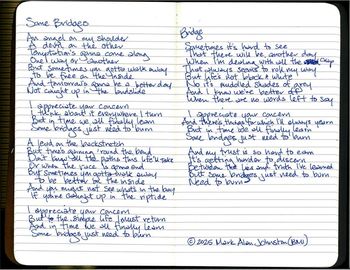 Some Bridges
An angel on my shoulder
A devil on the other
Temptation's gonna come along
One way or another
But sometimes you gotta walk away
To be free on the inside
And tomorrow's gonna be a better day
Not caught up in the landslide
I appreciate your concern
I think about it everywhere I turn
But in time we all finally learn
Some bridges just need to burn
A lead on the backstretch
But there's a 'round the bend
Don't know all the paths this life'll take
Or when the race is gonna end
But sometimes you gotta walk away
To be better on the inside
And you might not see what's in the bay
If you're caught up in the riptide
I appreciate your concern
But to the simple life I must return
And in time we all finally learn
Some bridges just need to burn
Bridge
Sometimes it's hard to see
That there will be another day
When I'm dealing with all the crap
That always seems to roll my way
But life's not black & white
No it's muddled shades of grey
And I know we're better off
When there are no words left to say
I appreciate your concern
And there's things for which I'll always yearn
But in time we all finally learn
Some bridges just need to burn
And my trust is so hard to earn
It's getting harder to discern
Between the lies and truth I've learned
But some bridges just need to burn
Need to burn
©2025 Mark Alan Johnston (BMI)